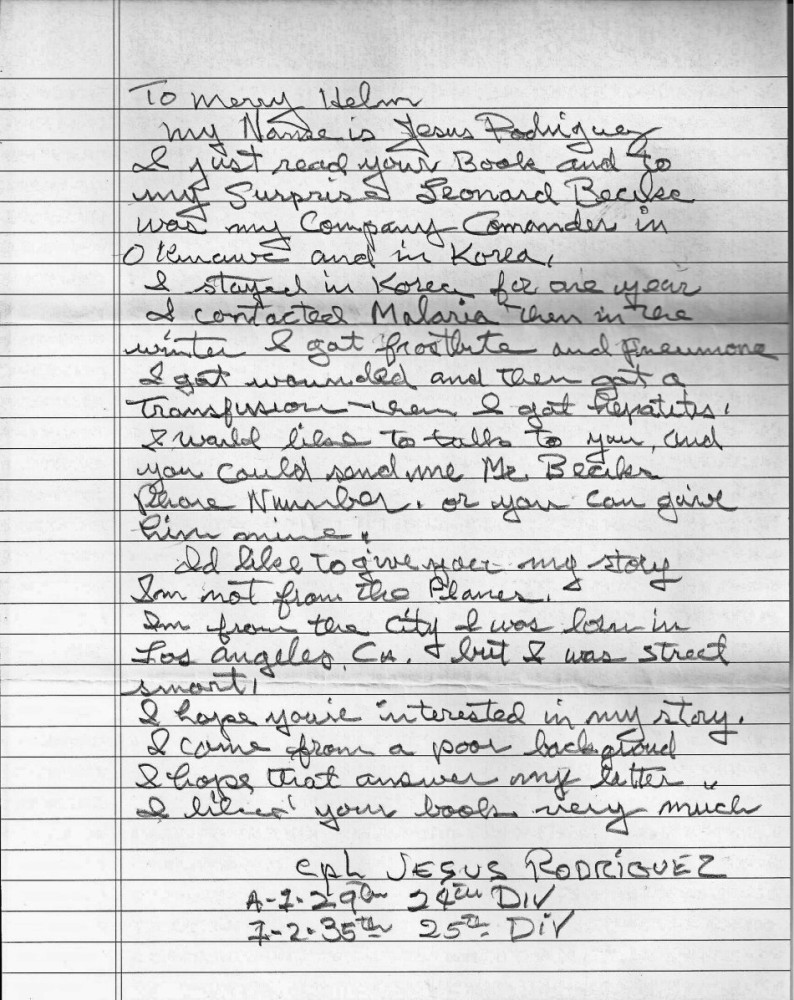 To Merry Helm
My Name is Jesus Rodriguez
I just read your Book and to
my Surprise Leonard Becike
was my Company Comander in
Okinawe and in Korea,
I stayed in Korea for one year
I contacted Malaria then in the
winter I got frostbite and Pneumone
I got wounded and then got a
Transfusion then I got Hepatites.
I would like to talk to you, and
you could send me Mr Becike
Phone Number. or you can give
him mine.
Id like to give your my story
Im not from the Planes.
Im from the city I was born in
Los angeles, CA. & but I was street
smart!
I hope you're interested in my story.
I come from a poor backgroud
I hope that answer my letter
I liked your book very much
cpl JESUS RODRIGUEZ
A-1-29th 24th DIV
2-35th 25th DiV